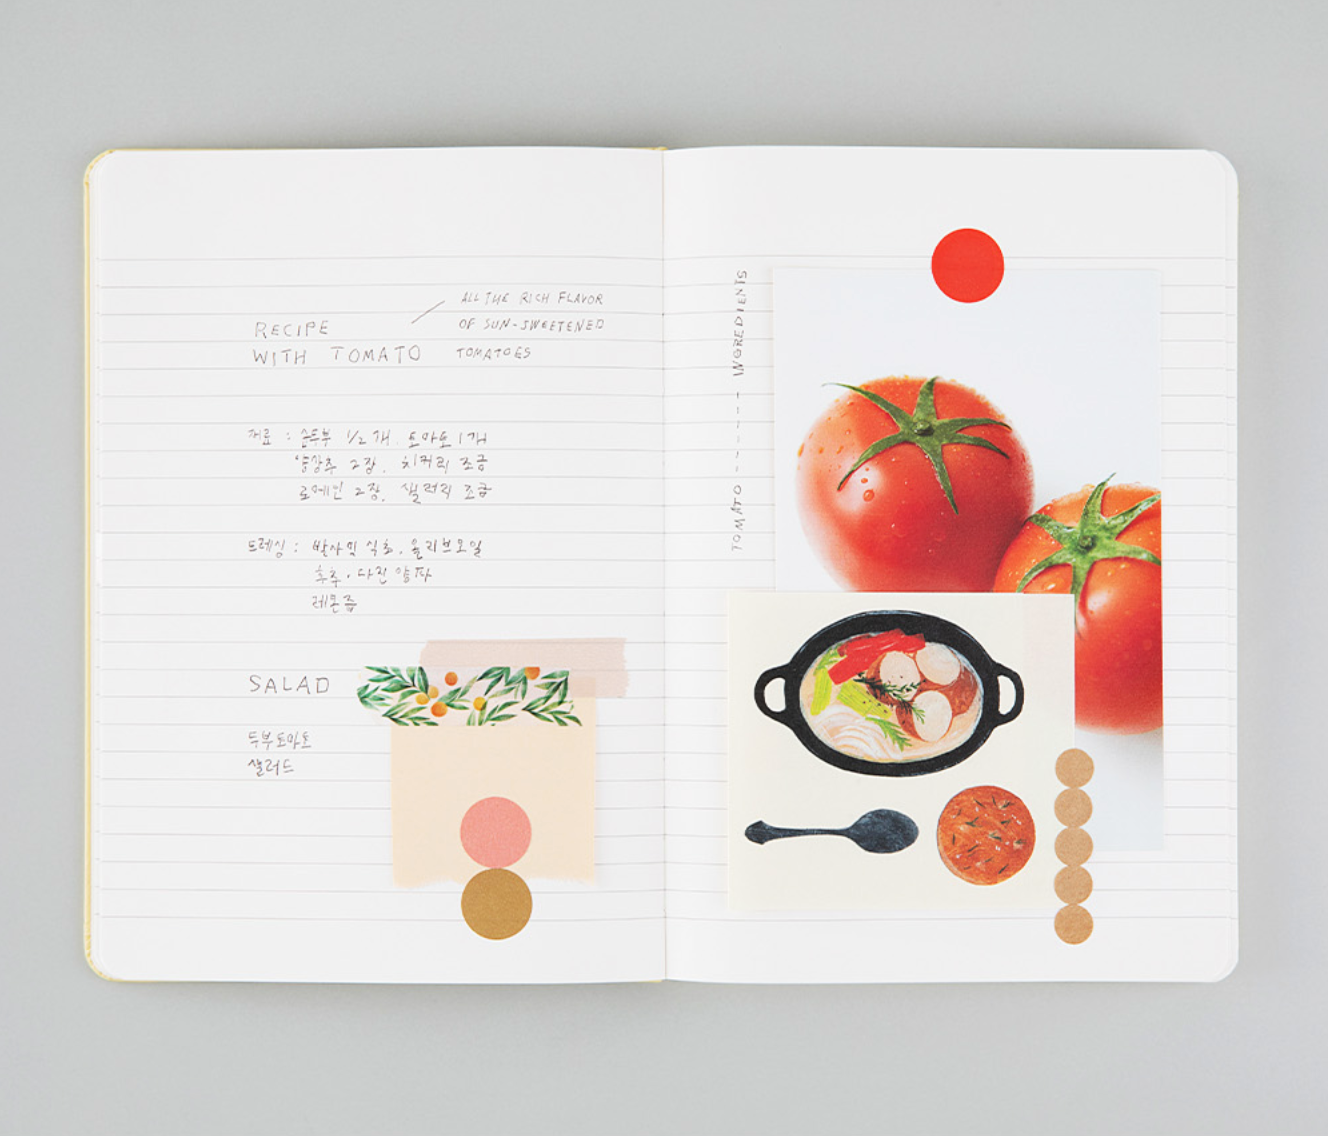 RECIPE
WITH TOMATO
ALL THE RICH FLAVOR
OF SUN-SWEETENED
TOMATOES
재료 : 순두부 1/2개, 토마토 1개
양상추 2장, 치커리 조금
로메인 2장, 샐러리 조금
드레싱 : 발사믹 식초, 올리브오일
후추, 다진 양파
레몬즙
SALAD
두부토마토
샐러드
TOMATO ------- INGREDIENTS